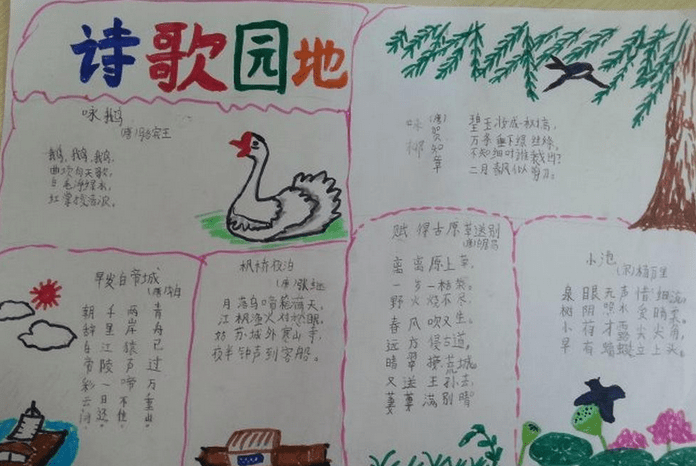 诗歌园地
咏鹅
(唐)骆宾王
鹅,鹅,鹅,
曲项向天歌,
白毛浮绿水,
红掌拨清波。
咏柳
(唐)贺知章
碧玉妆成一树高,
万条垂下绿丝绦,
不知细叶谁裁出?
二月春风似剪刀。
早发白帝城
(唐)李白
朝辞白帝彩云间,
千里江陵一日还。
两岸猿声啼不住,
青舟已过万重山。
枫桥夜泊
(唐)张继
月落乌啼霜满天,
江枫渔火对愁眠。
姑苏城外寒山寺,
夜半钟声到客船。
赋得古原草送别
(唐)白居易
离离原上草,
一岁一枯荣。
野火烧不尽,
春风吹又生。
远方侵古道,
晴翠接荒城。
又送王孙去,
萋萋满别晴
小池
(宋)杨万里
泉眼无声惜细流
树阴照水爱晴柔
小荷才露尖尖角
早有蜻蜓立上头